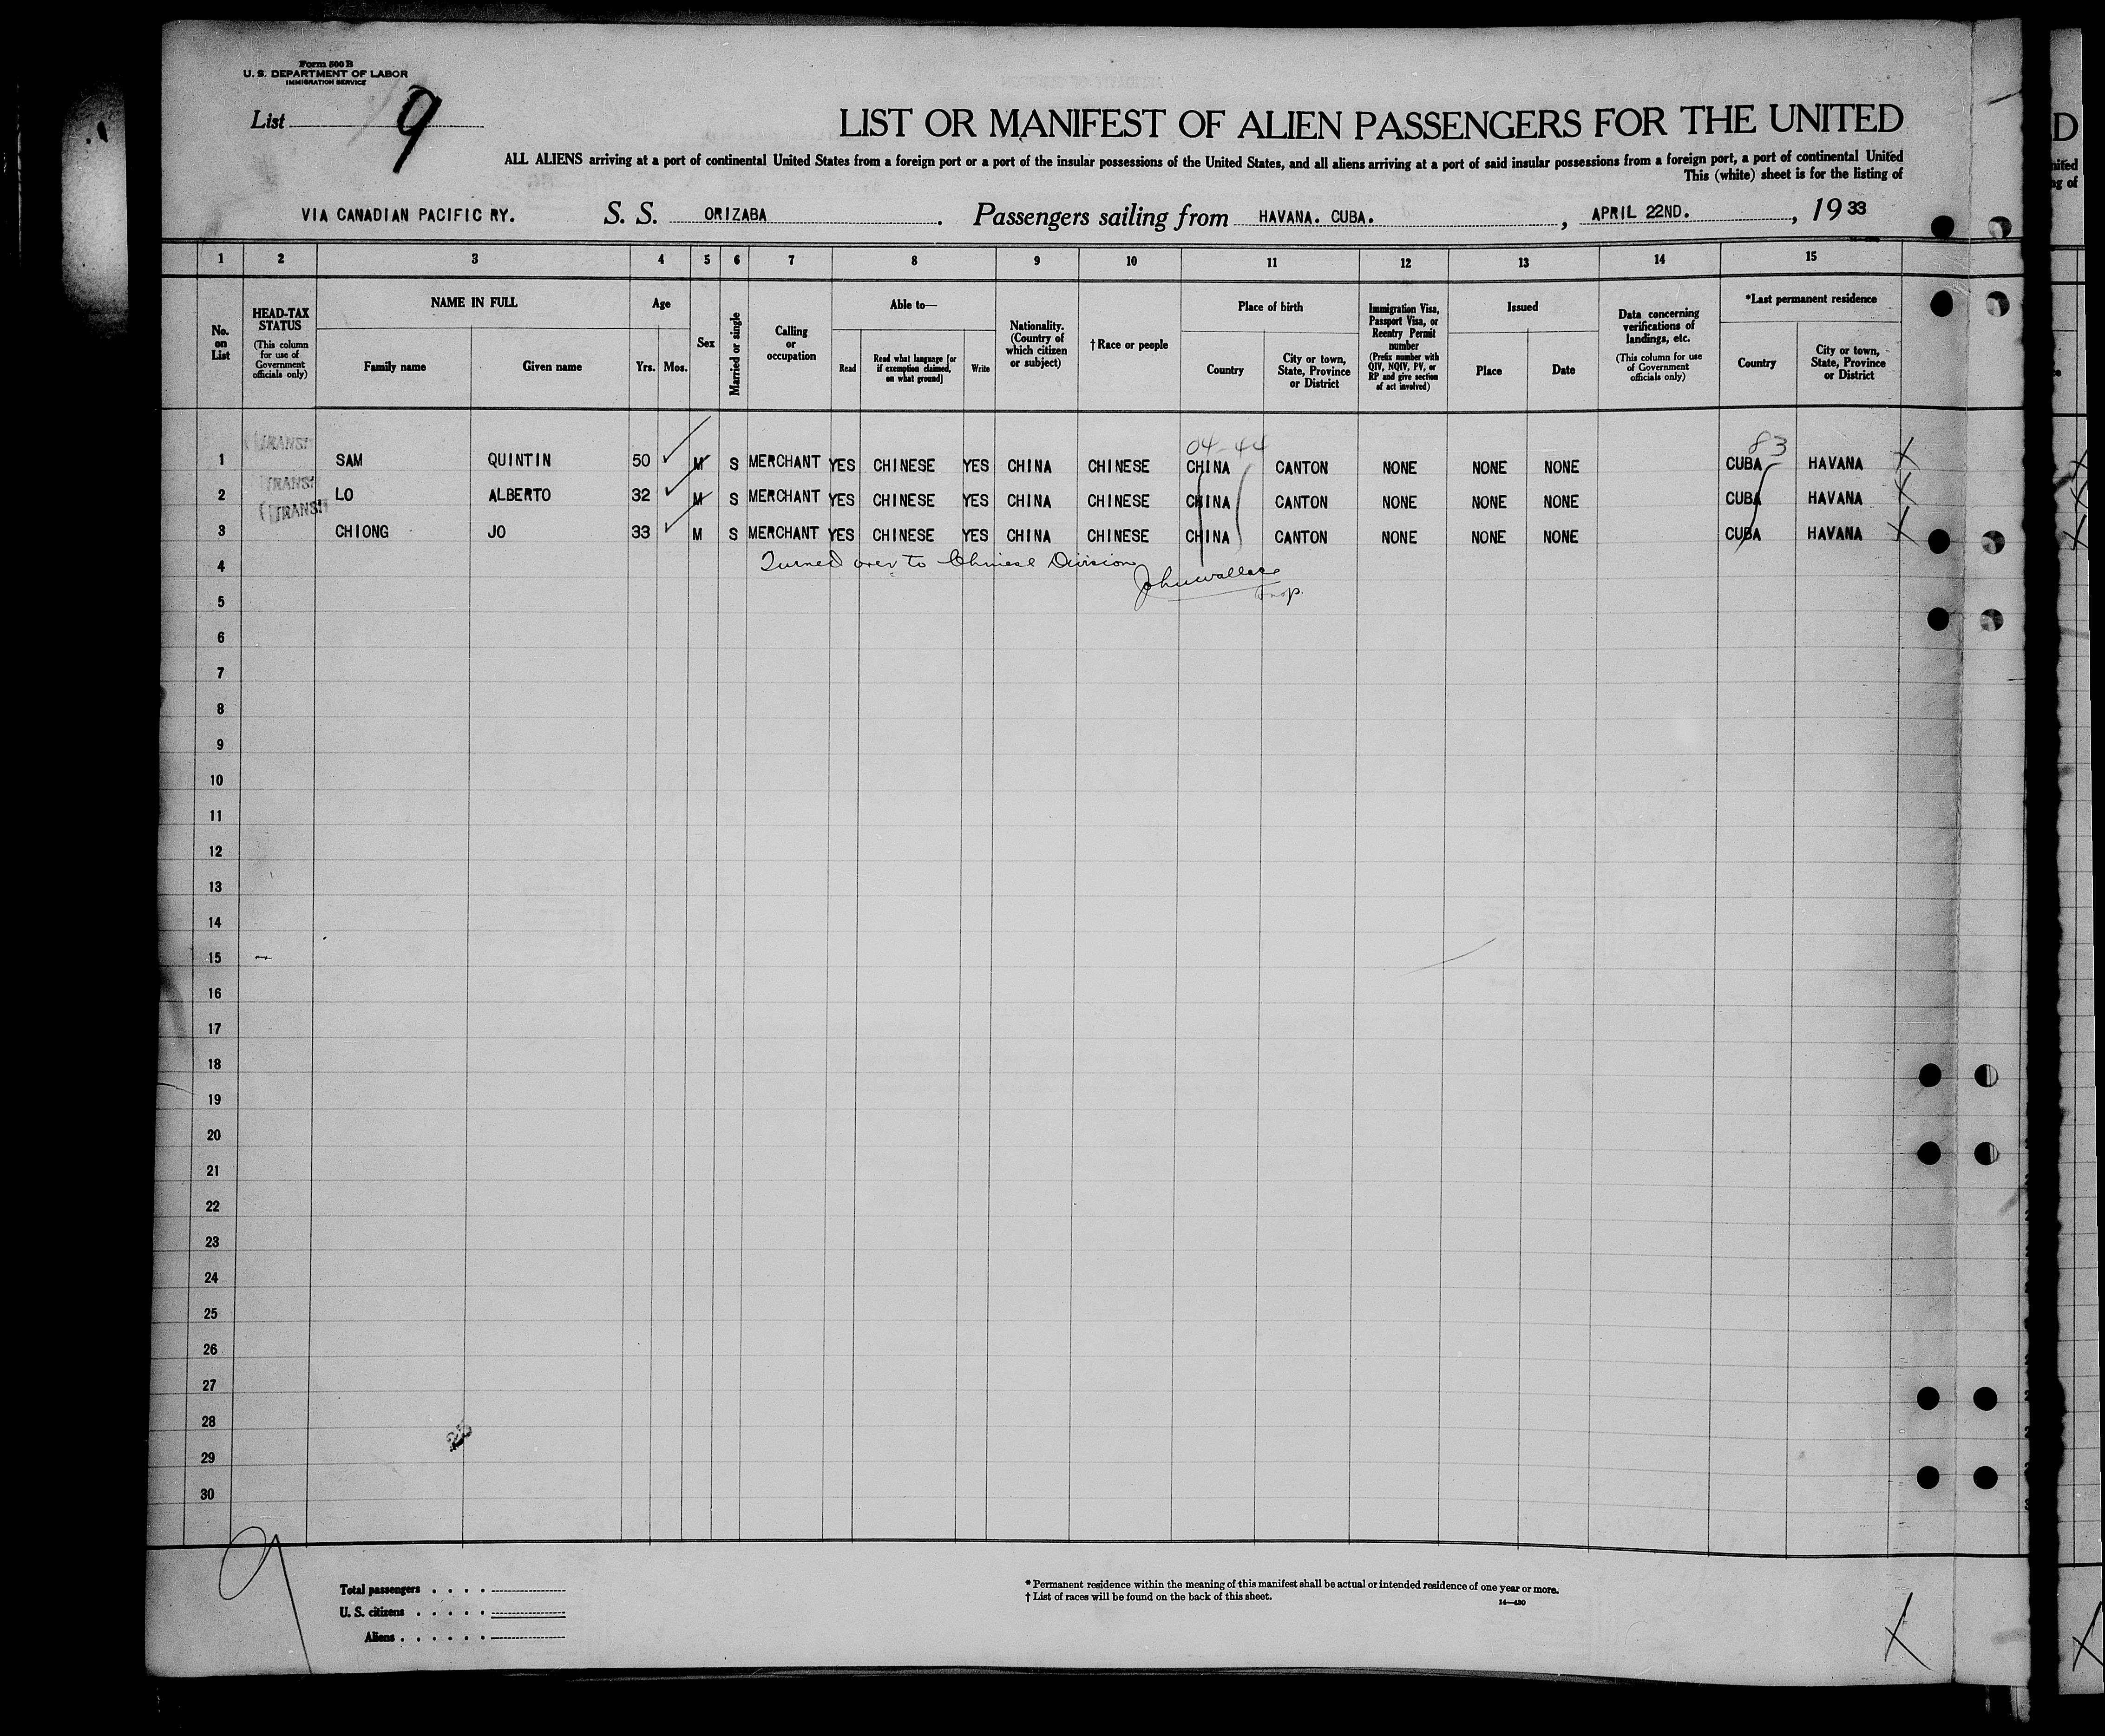 Form 500 B
U. S. DEPARTMENT OF LABOR
IMMIGRATION SERVICE
List 9
LIST OR MANIFEST OF ALIEN PASSENGERS FOR THE UNITED
ALL ALIENS arriving at a port of continental United States from a foreign port or a port of the insular possessions of the United States, and all aliens arriving at a port of said insular possessions from a foreign port, a port of continental United
This (white) sheet is for the listing of
VIA CANADIAN PACIFIC RY. S. S. ORIZABA. Passengers sailing from HAVANA. CUBA., APRIL 22ND., 19 33
1 2 3 4 5 6 7 8 9 10 11 12 13 14 15
No. on List
HEAD-TAX STATUS
(This column for use of Government officials only)
NAME IN FULL
Family name Given name
Age
Yrs. Mos.
Sex
Married or single
Calling or occupation
Able to—
Read
Read what language [or if exemption claimed, on what ground]
Write
Nationality. (Country of which citizen or subject)
† Race or people
Place of birth
Country
City or town, State, Province or District
Immigration Visa, Passport Visa, or Reentry Permit number
(Prefix number with QIV, NQIV, PV, or RP and give section of act involved)
Issued
Place Date
Data concerning verifications of landings, etc.
(This column for use of Government officials only)
*Last permanent residence
Country
City or town, State, Province or District
04-44 83
1 SAM QUINTIN 50 M S MERCHANT YES CHINESE YES CHINA CHINESE CHINA CANTON NONE NONE NONE CUBA HAVANA X
2 LO ALBERTO 32 M S MERCHANT YES CHINESE YES CHINA CHINESE CHINA CANTON NONE NONE NONE CUBA HAVANA X
3 CHIONG JO 33 M S MERCHANT YES CHINESE YES CHINA CHINESE CHINA CANTON NONE NONE NONE CUBA HAVANA X
4 Turned over to Chinese Division
John Wallace
5
6
7
8
9
10
11
12
13
14
15
16
17
18
19
20
21
22
23
24
25
26
27
28
29
30
9
Total passengers . . . .
U. S. citizens . . . . .
Aliens . . . . . .
* Permanent residence within the meaning of this manifest shall be actual or intended residence of one year or more.
† List of races will be found on the back of this sheet.
14—430
X